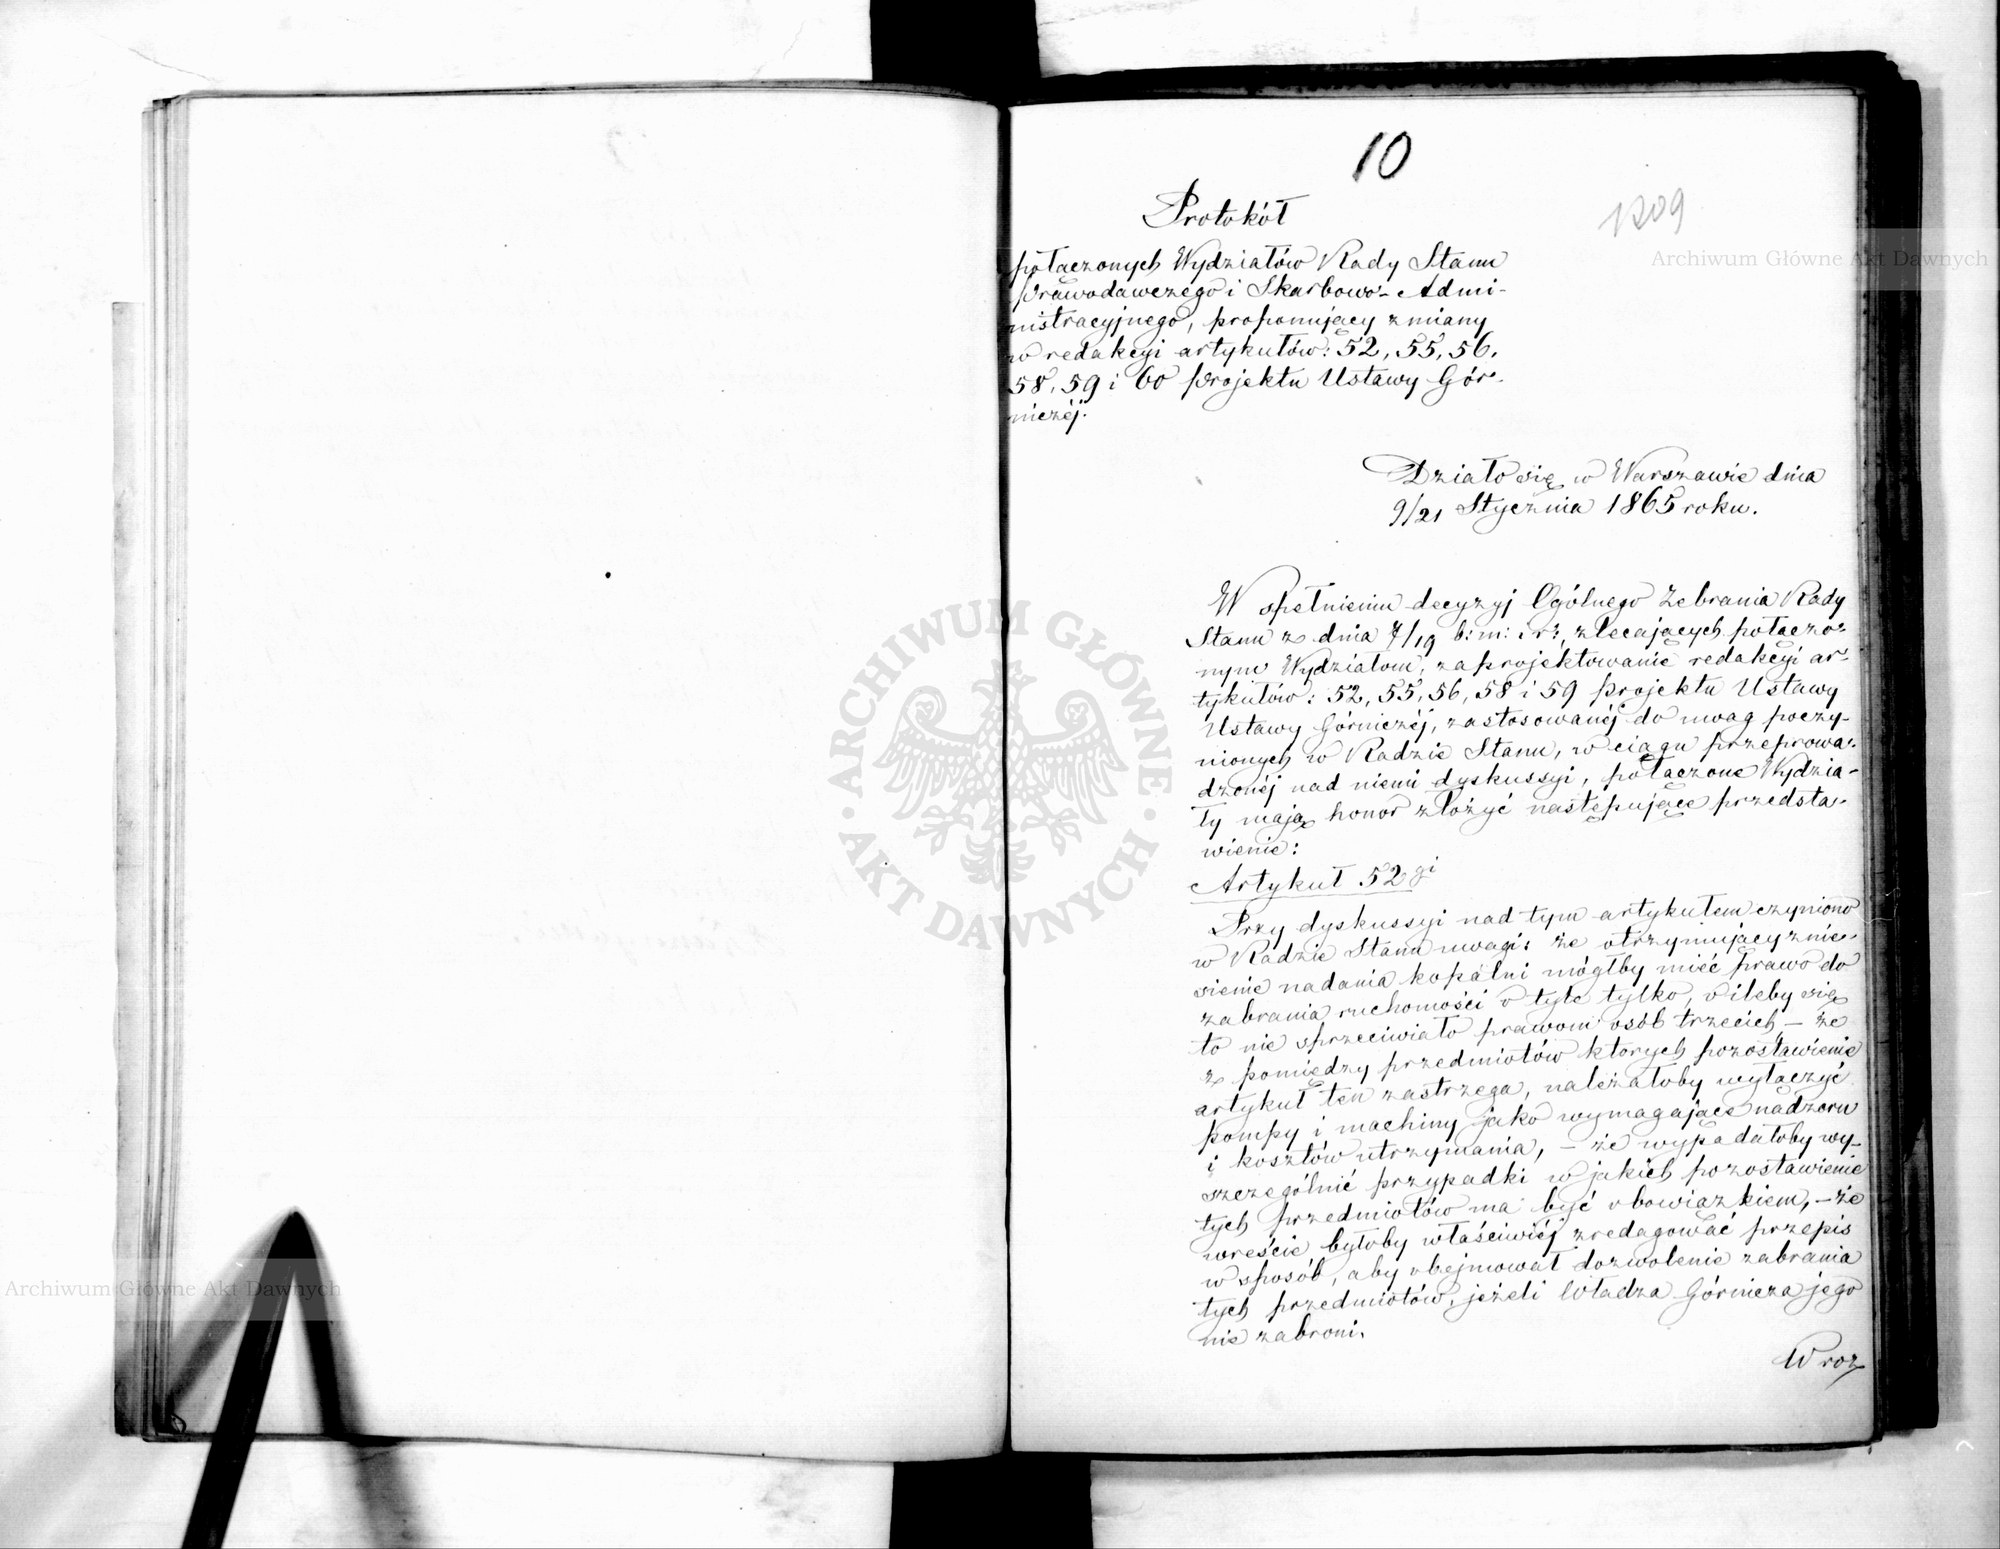 10
1209
Protokół
połączonych Wydziałów Rady Stanu
Prawodawczego i Skarbowo-Admi-
nistracyjnego, proponujący zmiany
w redakcyi artykułów: 52, 55, 56,
58, 59 i 60 projektu Ustawy Gór-
niczéj.
Działo się w Warszawie dnia
9/21 Stycznia 1865 roku.
W spełnieniu decyzyj Ogólnego Zebrania Rady
Stanu z dnia 7/19 b: m: i r:, zlecających połączo-
nym Wydziałom, zaprojektowanie redakcyi ar-
tykułów: 52, 55, 56, 58 i 59 projektu Ustawy
Ustawy Górniczéj, zastosowanéj do uwag poczy-
nionych w Radzie Stanu, w ciągu przeprowa-
dzonéj nad niemi dyskussyi, połączone Wydzia-
ły mają honor złożyć następujące przedsta-
wienie:
Artykuł 52gi
Przy dyskussyi nad tym artykułem czyniono
w Radzie Stanu uwagi: że otrzymujący znie-
sienie nadania kopalni mógłby mieć prawo do
zabrania ruchomości o tyle tylko, o ileby się
to nie sprzeciwiało prawom osób trzecich – że
z pomiędzy przedmiotów ktorych pozostawienie
artykuł ten zastrzega, należałoby wyłączyć
pompy i machiny jako wymagające nadzoru
i kosztów utrzymania, – że wypadałoby wy-
szczególnić przypadki w jakich pozostawienie
tych przedmiotów ma być obowiązkiem, – że
wreście byłoby właściwiéj zredagować przepis
w sposób, aby obejmował dozwolenie zabrania
tych przedmiotów, jeżeli Władza Górnicza jego
nie zabroni.
W roz
Archiwum Główne Akt Dawnych
Archiwum Główne Akt Dawnych
ARCHIWUM GŁÓWNE · AKT DAWNYCH ·